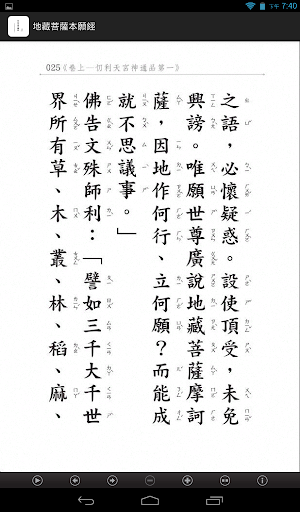 下午 7:40
地藏菩薩本願經
025《卷上—忉利天宮神通品第一》
之語，必懷疑惑。設使頂受，未免
興謗。唯願世尊廣說地藏菩薩摩訶
薩，因地作何行、立何願？而能成
就不思議事。」
佛告文殊師利：「譬如三千大千世
界所有草、木、叢、林、稻、麻、